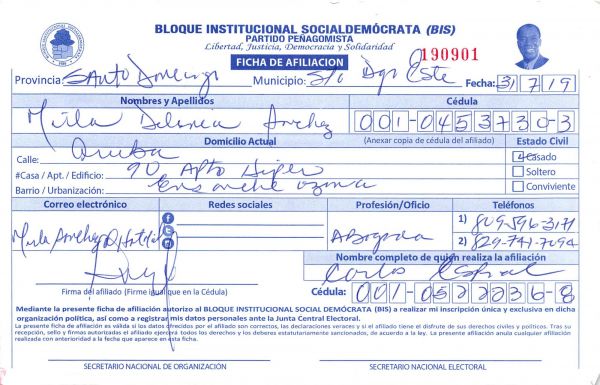 BLOQUE INSTITUCIONAL SOCIALDEMÓCRATA (BIS)
PARTIDO PEÑAGOMISTA
Libertad, Justicia, Democracia y Solidaridad
FICHA DE AFILIACION 190901
Provincia: Santo Domingo Municipio: Sto Dgo Este Fecha: 31 7 19
Nombres y Apellidos Cédula
Mirla Sanchez 001-0453730-3
Domicilio Actual (Anexar copia de cédula del afiliado) Estado Civil
Calle: Aruba Casado
#Casa / Apt. / Edificio: 90 Apto Soltero
Barrio / Urbanización: Ensanche Ozama Conviviente
Correo electrónico Redes sociales Profesión/Oficio Teléfonos
Mirla Sanchez@ Abogada 1) 809-596-3171
2) 829-741-7094
Nombre completo de quién realiza la afiliación
Carlos
Firma del afiliado (Firme igual que en la Cédula) Cédula: 001-0522236-8
Mediante la presente ficha de afiliación autorizo al BLOQUE INSTITUCIONAL SOCIAL DEMÓCRATA (BIS) a realizar mi inscripción única y exclusiva en dicha
organización política, así como a registrar mis datos personales ante la Junta Central Electoral.
La presente ficha de afiliación es válida si los datos ofrecidos por el afiliado son correctos, las declaraciones veraces y si el afiliado tiene el disfrute de sus derechos civiles y políticos. Tras su
recepción, sello y firmas autorizadas el afiliado ejercerá todos los derechos y los deberes estatutariamente sancionados, de acuerdo a la ley. La presente afiliación anula cualquier afiliación
realizada con anterioridad a la fecha que aparece en esta ficha.
SECRETARIO NACIONAL DE ORGANIZACIÓN SECRETARIO NACIONAL ELECTORAL